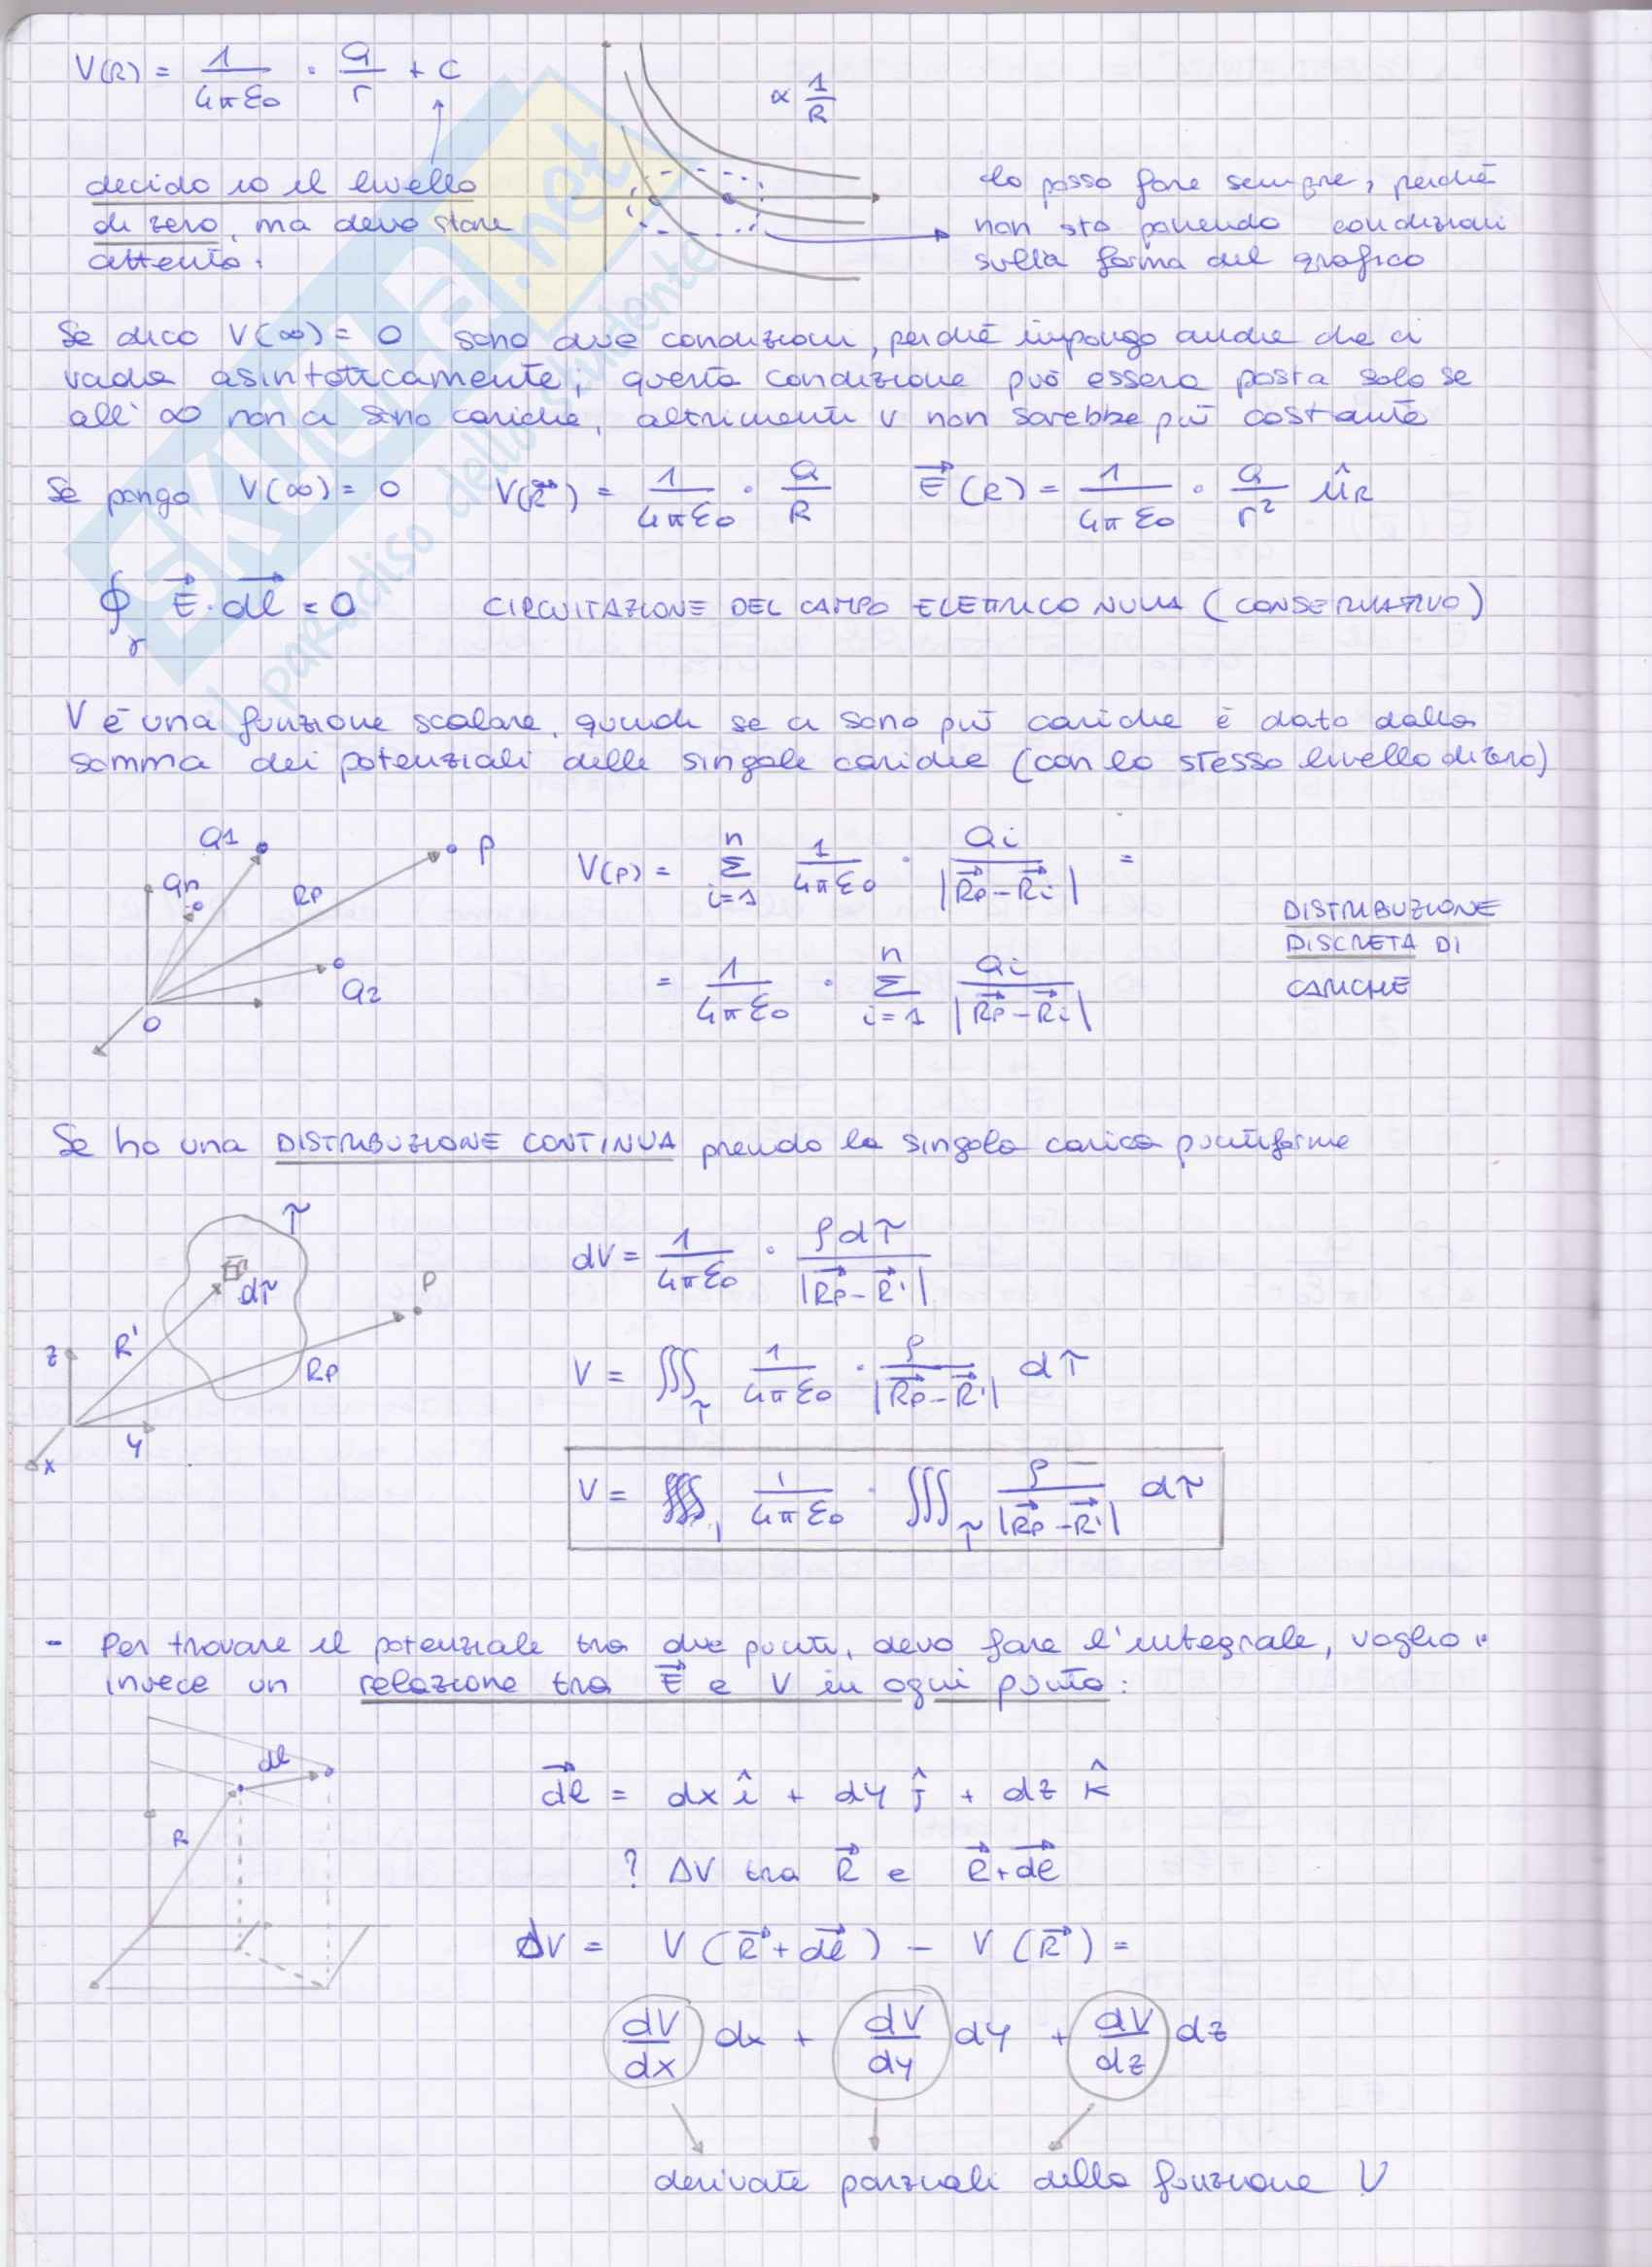 V(R) = 1/4πε0 · q/r + C
∝ 1/R
decido io il livello
di zero, ma devo stare
attento.
lo posso fare sempre, perchè
non sto ponendo condizioni
sulla forma del grafico
Se dico V(∞) = 0 sono due condizioni, perchè impongo anche che ci
vada asintoticamente; questa condizione può essere posta solo se
all' ∞ non ci sono cariche, altrimenti V non sarebbe più costante
Se pongo V(∞) = 0 V(R⃗) = 1/4πε0 · Q/R E⃗(R) = 1/4πε0 · Q/r² û_R
∮_γ E⃗ · dl⃗ = 0 CIRCUITAZIONE DEL CAMPO ELETTRICO NULLA (CONSERVATIVO)
V è una funzione scalare, quindi se ci sono più cariche è dato dalla
somma dei potenziali delle singole cariche (con lo stesso livello di zero)
Q1
P
qn
RP
Q2
O
V(P) = Σ_{i=1}^{n} 1/4πε0 · Qi/|R⃗P - R⃗i| =
= 1/4πε0 · Σ_{i=1}^{n} Qi/|R⃗P - R⃗i|
DISTRIBUZIONE
DISCRETA DI
CARICHE
Se ho una DISTRIBUZIONE CONTINUA prendo la singola carica puntiforme
τ
dτ
P
R'
RP
z
y
x
dV = 1/4πε0 · ρdτ/|R⃗P - R⃗'|
V = ∭_τ 1/4πε0 · ρ/|R⃗P - R⃗'| dτ
V = 1/4πε0 · ∭_τ ρ/|R⃗P - R⃗'| dτ
- Per trovare il potenziale tra due punti, devo fare l'integrale, voglio
invece un relazione tra E⃗ e V in ogni punto:
dl
R
dl⃗ = dx î + dy ĵ + dz k̂
? ΔV tra R⃗ e R⃗+dl⃗
dV = V(R⃗+dl⃗) - V(R⃗) =
dV/dx dx + dV/dy dy + dV/dz dz
derivate parziali della funzione V
SKUOLA.net
il paradiso dello studente